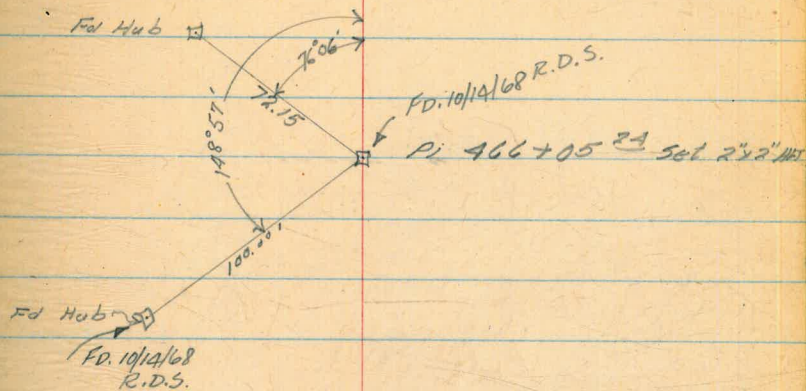 Fd Hub
76°06'
72.15
148°57'
FD. 10/14/68 R.D.S.
Pi 466+05 24 Set 2"x2"
100.00'
Fd Hub
FD. 10/14/68
R.D.S.